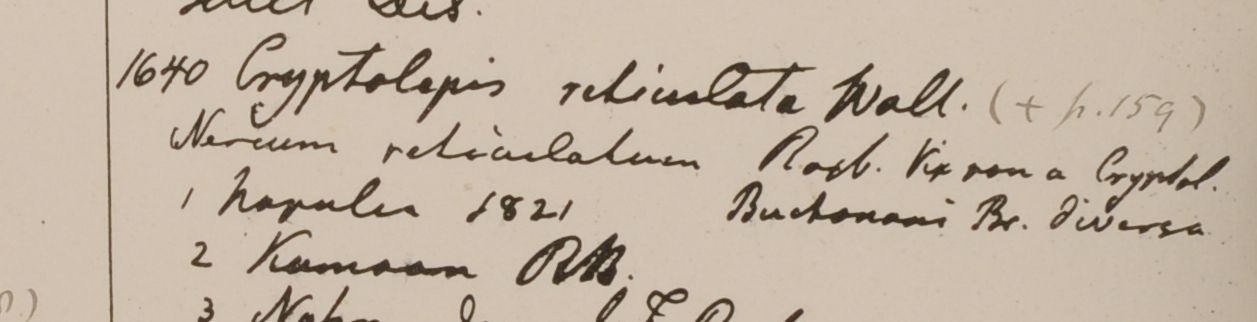 1640 Cryptolepis reticulata Wall. (+ p. 159)
Nerium reticulatum Roxb. Vix non a Cryptol.
1 Napalia 1821 Buchanani Br. diversa
2 Kamaon RB.
3